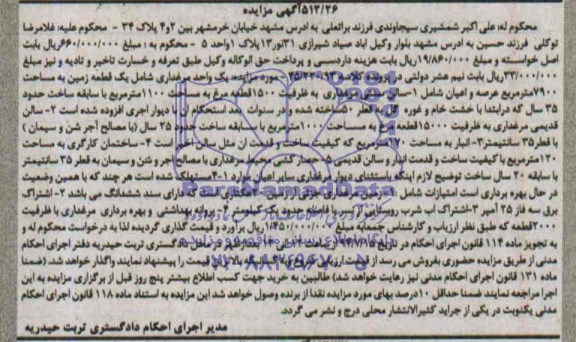 ۵۱۳/۲۶آگهی مزایده
محکوم له: علی اکبر شمشیری سیجاوندی فرزند براتعلی به آدرس مشهد خیابان خرمشهر بین ۲و۴ پلاک ۳۴ - محکوم علیه: غلامرضا
توکلی فرزند حسین به آدرس مشهد بلوار وکیل آباد صیاد شیرازی ۳۱نور۱۳ پلاک ۱واحد ۵ - محکوم به : مبلغ ۶۶۰/۰۰۰/۰۰۰ریال بابت
اصل خواسته و مبلغ ۱۹/۸۶۰/۰۰۰ریال بابت هزینه دادرسی و پرداخت حق الوکاله وکیل طبق تعرفه و خسارت تاخیر و تادیه و نیز مبلغ
۳۳/۰۰۰/۰۰۰ریال بابت نیم عشر دولتی - مورد مزایده: یک واحد مرغداری شامل یک قطعه زمین به مساحت
۷۹۰۰مترمربع عرصه و اعیان شامل ۱-سالن مرغداری به ظرفیت ۱۵۰۰قطعه مرغ به مساحت ۱۱۰۰مترمربع با سابقه ساخت حدود
۳۵ سال که درابتدا با خشت خام و غوره گل به قطر ۵۰ ساخته شده و در سنوات بعد استحکام آن با دیوار آجری افزوده شده است ۲- سالن
قدیمی مرغداری به ظرفیت ۱۵۰۰۰قطعه مرغ به مساحت ۱۰۰۰مترمربع با سابقه ساخت حدود ۲۵ سال (با مصالح آجر شن و سیمان )
با قطر۳۵ سانتیمتر۳-انبار به مساحت ۱۷۰مترمربع که کیفیت ساخت و قدمت آن مثل سالن آخر است ۴- ساختمان کارگری به مساحت
۱۲۰مترمربع با کیفیت ساخت و قدمت انبار و سالن قدیمی ۵-حصار کشی محیط مرغداری با مصالح آجر و شن و سیمان به قطر ۳۵ سانتیمتر
با سابقه ۲۰ سال ساخت توضیح لازم اینکه باستثنای دیوار مرغداری سایر اعیان موارد ۱-۴مستهلک شده است هر چند که با همین وضعیت
در حال بهره برداری است امتیازات شامل که دارای سند ششدانگ می باشد ۲- اشتراک
برق سه فاز ۲۵ آمپر ۳-اشتراک آب شرب پروانه بهداشتی و بهره برداری مرغداری با ظرفیت
۲۰۰۰قطعه که طبق نظر ارزیاب و کارشناس جمعا به مبلغ ۱/۴۵۰/۰۰۰/۰۰۰ریال برآورد و قیمت گردی گردیده لذا به درخواست محکوم له و
به تجویز ماده ۱۱۴ قانون اجرای احکام در تاریخ دادگستری تربت حیدریه دفتر اجرای احکام
مدنی از طریق مزایده حضوری بفروش می رسد قیمت را پیشنهاد نمایند واگذار خواهد شد. (ضمنا
ماده ۱۳۱ قانون اجرای احکام مدنی نیز رعایت خواهد شد) طالبین به خرید جهت کسب اطلاع بیشتر پنج روز قبل از برگزاری مزایده به این
اجرا مراجعه نمایند ضمنا حداقل ۱۰درصد بهای مورد مزایده نقدا از برنده وصول خواهد شد این مزایده به استناد ماده ۱۱۸ قانون اجرای احکام
مدنی یکنوبت در یکی از جراید کثیرالانتشار محلی درج و نشر می گردد.
مدیر اجرای احکام دادگستری تربت حیدریه